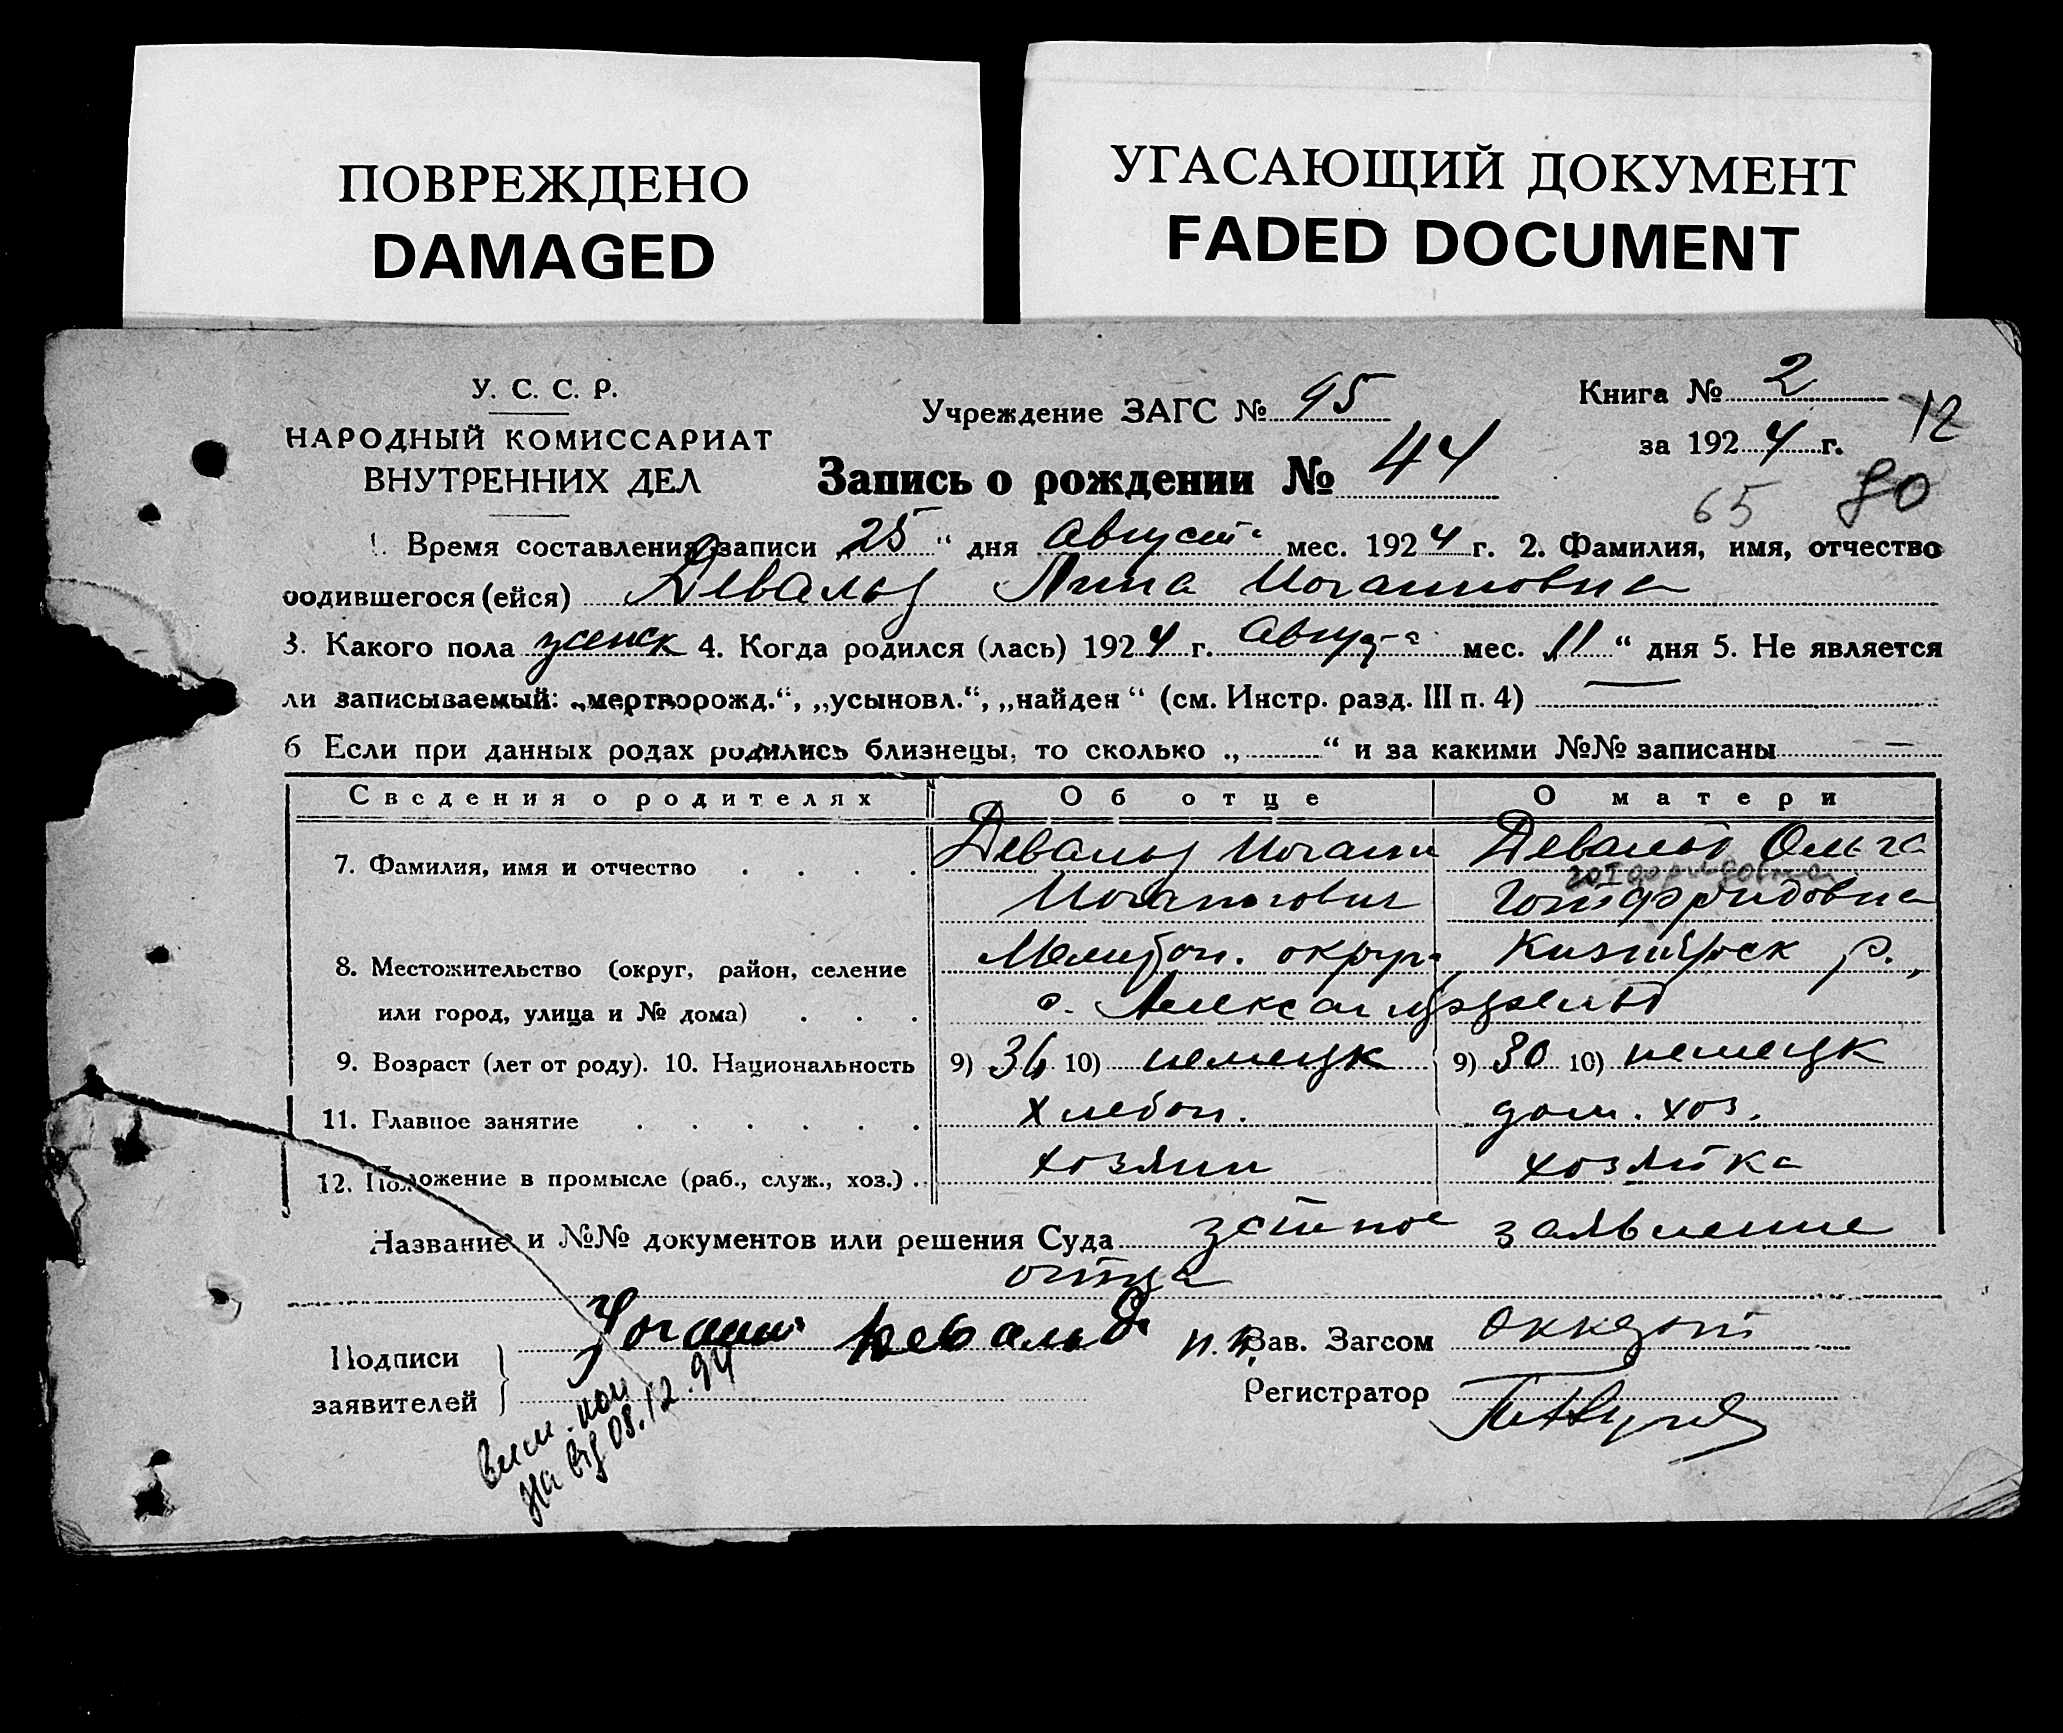 ПОВРЕЖДЕНО
DAMAGED
УГАСАЮЩИЙ ДОКУМЕНТ
FADED DOCUMENT
У. С. С. Р.
НАРОДНЫЙ КОМИССАРИАТ
ВНУТРЕННИХ ДЕЛ
Учреждение ЗАГС № 95
Книга № 2
за 1924 г.
12
Запись о рождении № 44
65 80
1. Время составления записи „25“ дня августа мес. 1924 г. 2. Фамилия, имя, отчество
родившегося (ейся) Девальд Лина Иоганновна
3. Какого пола женск 4. Когда родился (лась) 1924 г. августа мес. „11“ дня 5. Не является
ли записываемый: „мертворожд.“, „усыновл.“, „найден“ (см. Инстр. разд. III п. 4) —
6 Если при данных родах родились близнецы, то сколько „ “ и за какими №№ записаны —
Сведения о родителях Об отце О матери
7. Фамилия, имя и отчество Девальд Иоганн Девальд Ольга
Готфридовна
Иоганнович Готфридовна
8. Местожительство (округ, район, селение Мелитоп. округа, р.,
или город, улица и № дома) с. Александрфельд
9. Возраст (лет от роду). 10. Национальность 9) 36 10) немецк 9) 30 10) немецк
11. Главное занятие хлебоп. дом. хоз.
12. Положение в промысле (раб., служ., хоз.) хозяин хозяйка
Название и №№ документов или решения Суда устное заявление
отца
Подписи
заявителей
Иоганн Девальд
08.12.94
Зав. Загсом
Регистратор